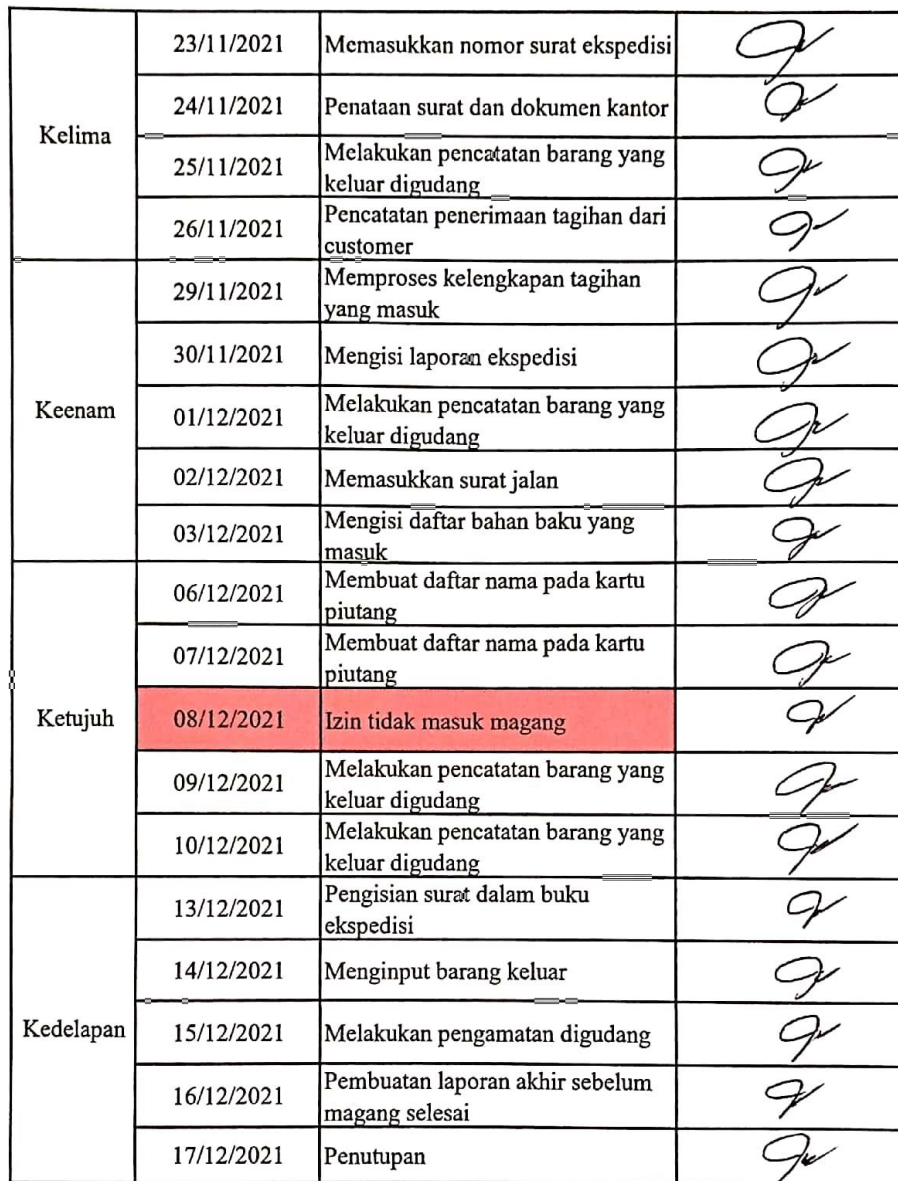 23/11/2021 Memasukkan nomor surat ekspedisi
24/11/2021 Penataan surat dan dokumen kantor
Kelima
25/11/2021 Melakukan pencatatan barang yang
keluar digudang
26/11/2021 Pencatatan penerimaan tagihan dari
customer
29/11/2021 Memproses kelengkapan tagihan
yang masuk
30/11/2021 Mengisi laporan ekspedisi
Keenam
01/12/2021 Melakukan pencatatan barang yang
keluar digudang
02/12/2021 Memasukkan surat jalan
03/12/2021 Mengisi daftar bahan baku yang
masuk
06/12/2021 Membuat daftar nama pada kartu
piutang
07/12/2021 Membuat daftar nama pada kartu
piutang
Ketujuh 08/12/2021 Izin tidak masuk magang
09/12/2021 Melakukan pencatatan barang yang
keluar digudang
10/12/2021 Melakukan pencatatan barang yang
keluar digudang
13/12/2021 Pengisian surat dalam buku
ekspedisi
14/12/2021 Menginput barang keluar
Kedelapan 15/12/2021 Melakukan pengamatan digudang
16/12/2021 Pembuatan laporan akhir sebelum
magang selesai
17/12/2021 Penutupan